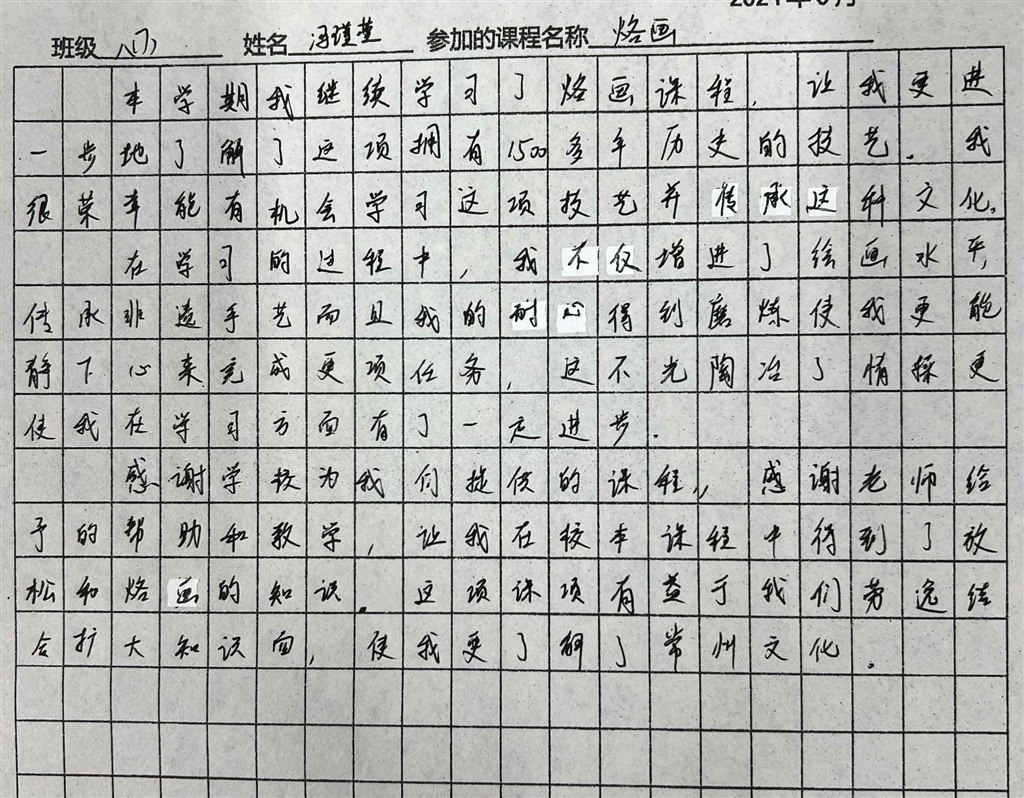 2021年6月
班级 八(7) 姓名 冯瑾萱 参加的课程名称 烙画
本学期我继续学习了烙画课程，让我更进
一步地了解了这项拥有1500多年历史的技艺．我
很荣幸能有机会学习这项技艺并传承这种文化。
在学习的过程中，我不仅增进了绘画水平，
传承非遗手艺而且我的耐心得到磨炼使我更能
静下心来完成更项任务，这不光陶冶了情操更
使我在学习方面有了一定进步．
感谢学校为我们提供的课程，，感谢老师给
予的帮助和教学，让我在校本课程中得到了放
松和烙画的知识．这项课项有益于我们劳逸结
合扩大知识面，使我更了解了常州文化．